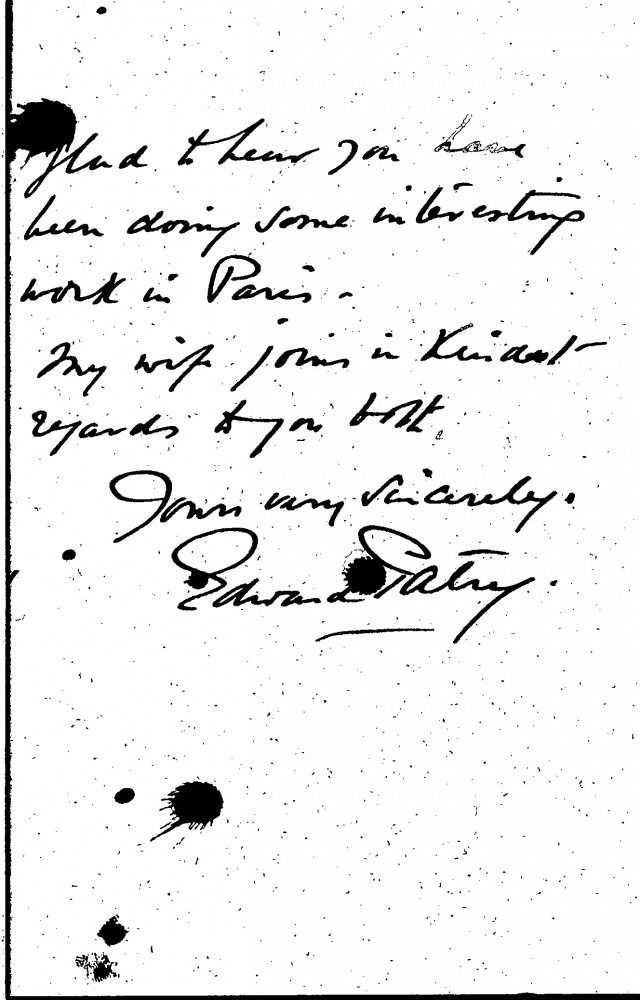 Glad to hear you have
been doing some interesting
work in Paris -
My wife joins in kindest
regards to you both.
Yours very sincerely.
Edward Patry.